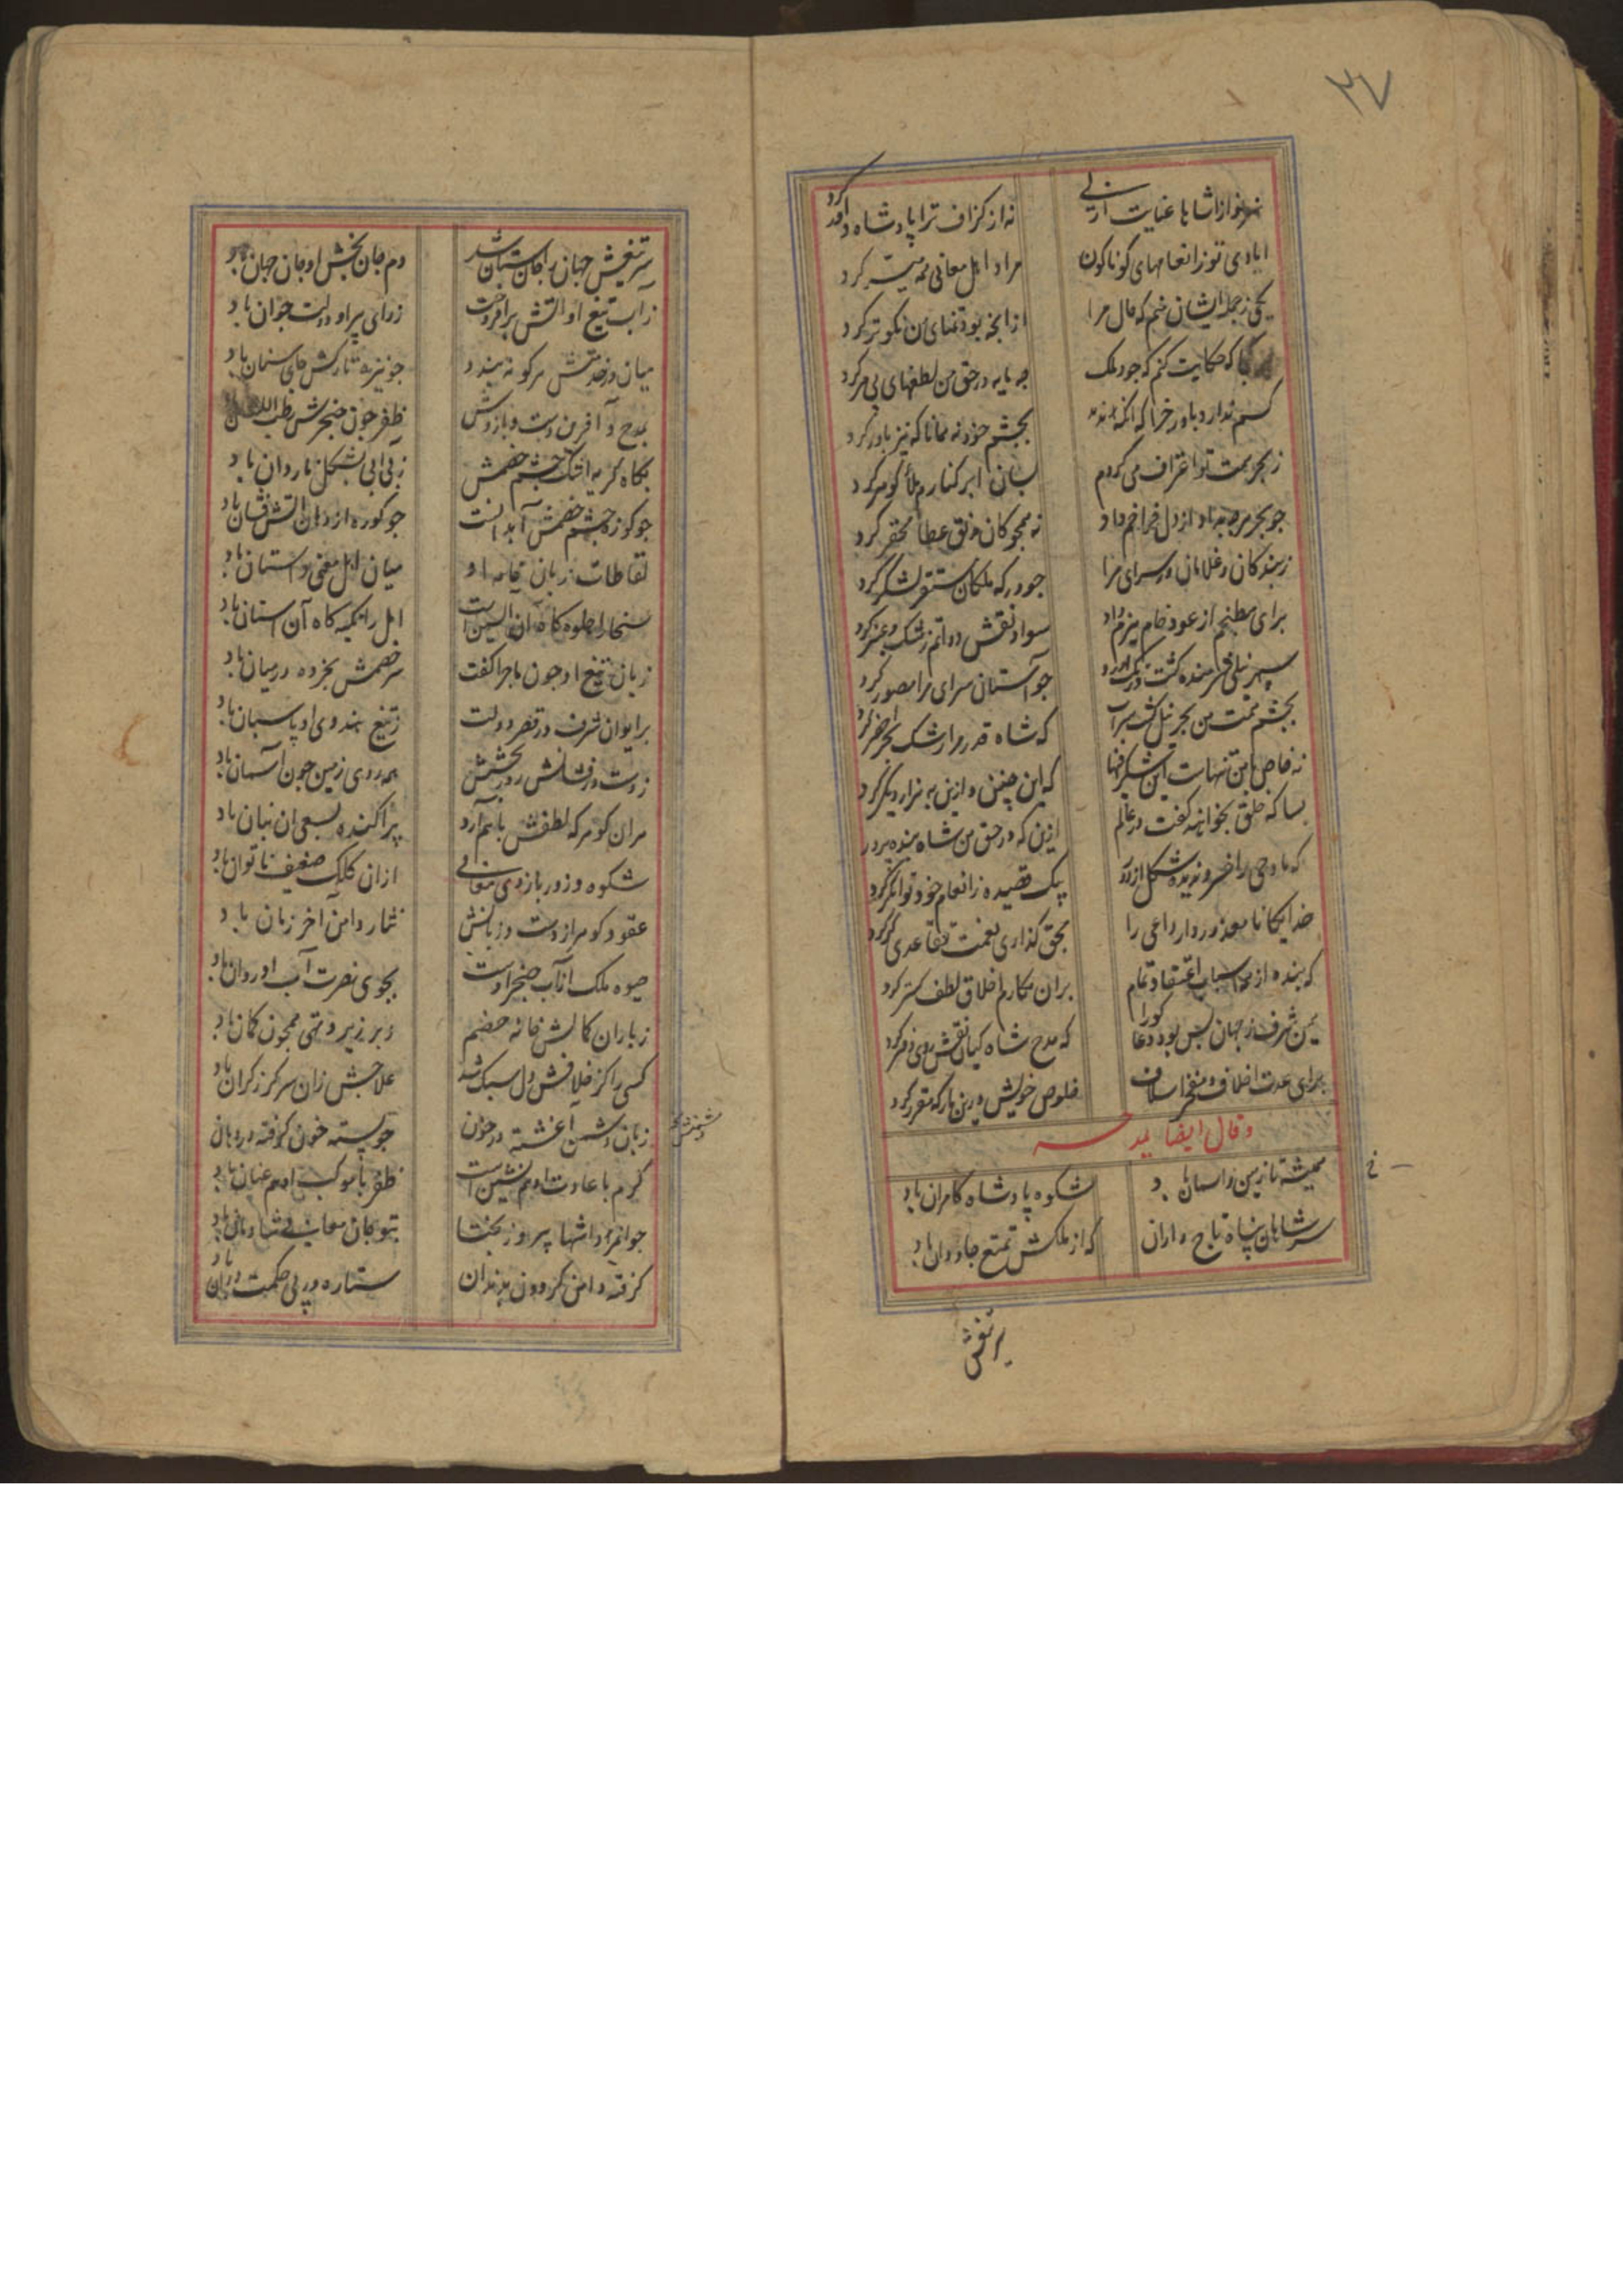 ۳۷
شاها عنایت ازلی
نه از گزاف ترا پادشاه داور کرد
ایادی تو ز انعامهای کوناکون
مراد اهل معانی همه میسر کرد
یکی ز جمله ایشان منم که حال مرا
از آنچه بود تمنای من نکوتر کرد
که حکایت کنم که جود ملک
چه مایه در حق من لطفهای بی مر کرد
کسم ندارد باور چرا که آنکه ندید
بچشم خود نه همانا که نیز باور کرد
ز بحر همت تو اغتراف می کردم
بسان ابر کنارم ملأ کوهر کرد
چو بحر هرچه بداد از دل فراخم داد
نه همچو کان عطا محقر کرد
ز بندکان و غلامان در سرای مرا
چو درکه ملکان مستقر لشکر کرد
برای مطبخم از عود خام هیزم داد
سواد نقش دواتم ز مشک و عنبر کرد
سپهر نیلی شرمنده کشت
چو آستان سرای مرا مصور کرد
بچشم همت من بحر نیل کشت سراب
که شاه قدر مرا رشک بحر اخضر کرد
نه خاص با من تنهاست این
که این چنین و ازین به هزار دیگر کرد
بسا که خلق بخواهد کفت در عالم
ازین که در حق من شاه بنده پرور کرد
که مادحی را خسرو
بیک قصیده ز انعام خود توانگر کرد
خدایکانا معذور دار داعی را
بحق کذاری نعمت تقاعدی گر کرد
که بنده از اعتقاد تمام
بران مکارم اخلاق لطف کستر کرد
همین شرف ز جهان بس بود دعاکو را
که مدح شاه کیان نقش روی دفتر کرد
برای مدت اخلاف و مفخر اسلاف
خلوص خویش درین بارکه مقرر کرد
و قال ایضا یمدحه
همیشه تا زمین و آسمان باد
شکوه پادشاه کامران باد
سر شاهان پناه تاج داران
که از ملکش تمتع جاودان باد
خ
سر تیغش
سر تیغش جهان را جان ستان شد
دم جان بخش او جان جهان باد
ز آب تیغ او آتش برافروخت
ز رای پیر او دولت جوان باد
میان در خدمتش هر کو نه بندد
چو نیزه تارکش جای سنان باد
بمدح و آفرین دست و بازوش
ظفر چون خنجرش رطب اللسان
بکاه کریه اشک چشم خصمش
ز بی آبی بشکل ناردان باد
چو کوزه چشم خصمش آبدانست
چو کوره از دهان آتش فشان باد
لقاطات زبان خامه او
میان اهل معنی داستان باد
امل را تکیه کاه آن آستان باد
زبان تیغ او چون ماجرا گفت
سر خصمش بخرده در میان باد
بر ایوان شرف در قصر دولت
ز تیغ هندوی او پاسبان باد
ز دست درفشانش روز بخشش
همه روی زمین چون آسمان باد
هران کوهر که لطفش باهم آرد
پراکنده بسعی آن بنان باد
شکوه و زور بازوی معانی
ازان کلک ضعیف ناتوان باد
عقود کوهر از دست و زبانش
نثار دامن آخر زمان باد
حیوة ملک از آب خنجر اوست
بجوی نصرت آب او روان باد
ز باران کمانش خانه خصم
زبر زیر و تهی همچون کمان باد
کسی را کز خلافش دل سبک شد
علاجش زان سر گرز گران باد
زبان دشمن آغشته در خون
چو پسته خون کرفته در دهان
کرم با عادت او همنشین است
ظفر با موکب او همعنان باد
جوانمردا شها پیروز بختا
بتو جان معانی شادمان باد
کرفته دامن کردون بدندان
ستاره در پی حکمت دوان باد